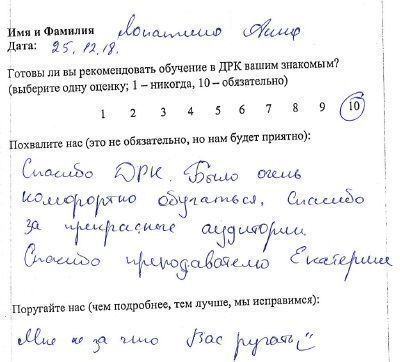 Имя и Фамилия Лопатено Анна
Дата: 25.12.18.
Готовы ли вы рекомендовать обучение в ДРК вашим знакомым?
(выберите одну оценку; 1 – никогда, 10 – обязательно)
1 2 3 4 5 6 7 8 9 10
Похвалите нас (это не обязательно, но нам будет приятно):
Спасибо ДРК. Было очень
комфортно обучаться, спасибо
за прекрасные аудитории
Спасибо преподавателю Екатерине
Поругайте нас (чем подробнее, тем лучше, мы исправимся):
Мне не за что Вас ругать